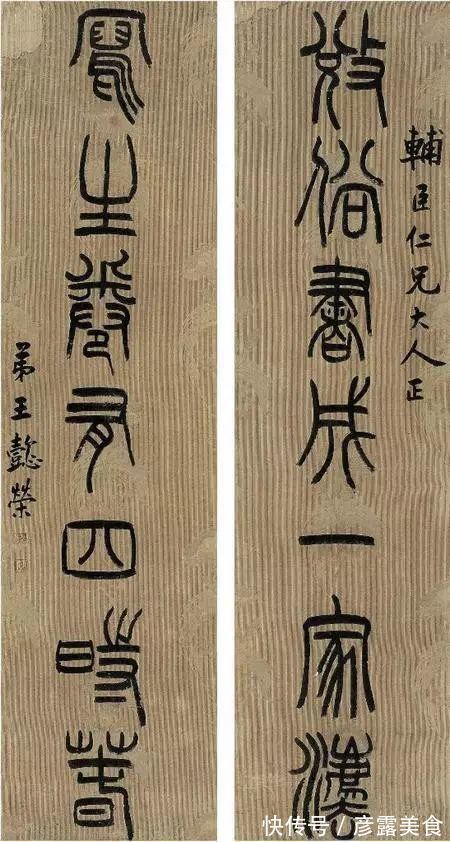 輔臣仁兄大人正
俗書成一家漢
生卷有四時春
弟王懿榮
快传号/彦露美食